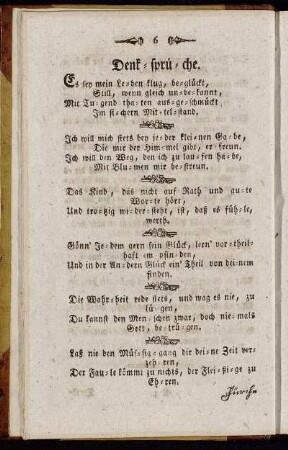 6
Denk-sprü-che.
Es sey mein Le-ben klug, be-glückt,
Still, wenn gleich un-be-kannt,
Mit Tu-gend tha-ten aus-ge-schmückt,
Im si-chern Mit-tel-stand.
Ich will mich stets bey je-der klei-nen Ga-be,
Die mir der Him-mel gibt, er-freun.
Ich will den Weg, den ich zu lau-fen ha-be,
Mit Blu-men mir be-streun.
Das Kind, das nicht auf Rath und gu-te
Wor-te hört,
Und tro-tzig wi-der-steht, ist, daß es füh-le,
werth.
Gönn' Je-dem gern sein Glück, lern' vor-theil-
haft em-pfin-den,
Und in der An-dern Glück ein' Theil von dei-nem
finden.
Die Wahr-heit rede stets, und wag es nie, zu
lü-gen,
Du kannst den Men-schen zwar, doch nie-mals
Gott, be-trü-gen.
Laß nie den Müs-sig-gang dir dei-ne Zeit ver-
zeh-ren,
Der Fau-le kömmt zu nichts, der Flei-ßi-ge zu
Eh-ren.